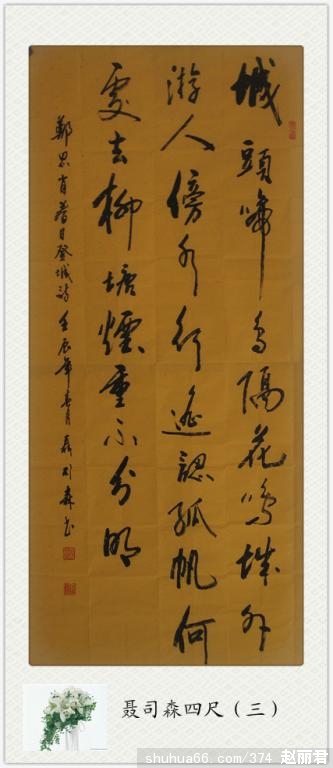 城頭啼鳥隔花鳴城外
游人傍水行遙認孤帆何
處去柳塘煙重不分明
鄭思肖春日登城詩 壬辰年春月聶司森书
聂司森四尺（三）
shuhua66.com/374 赵丽君